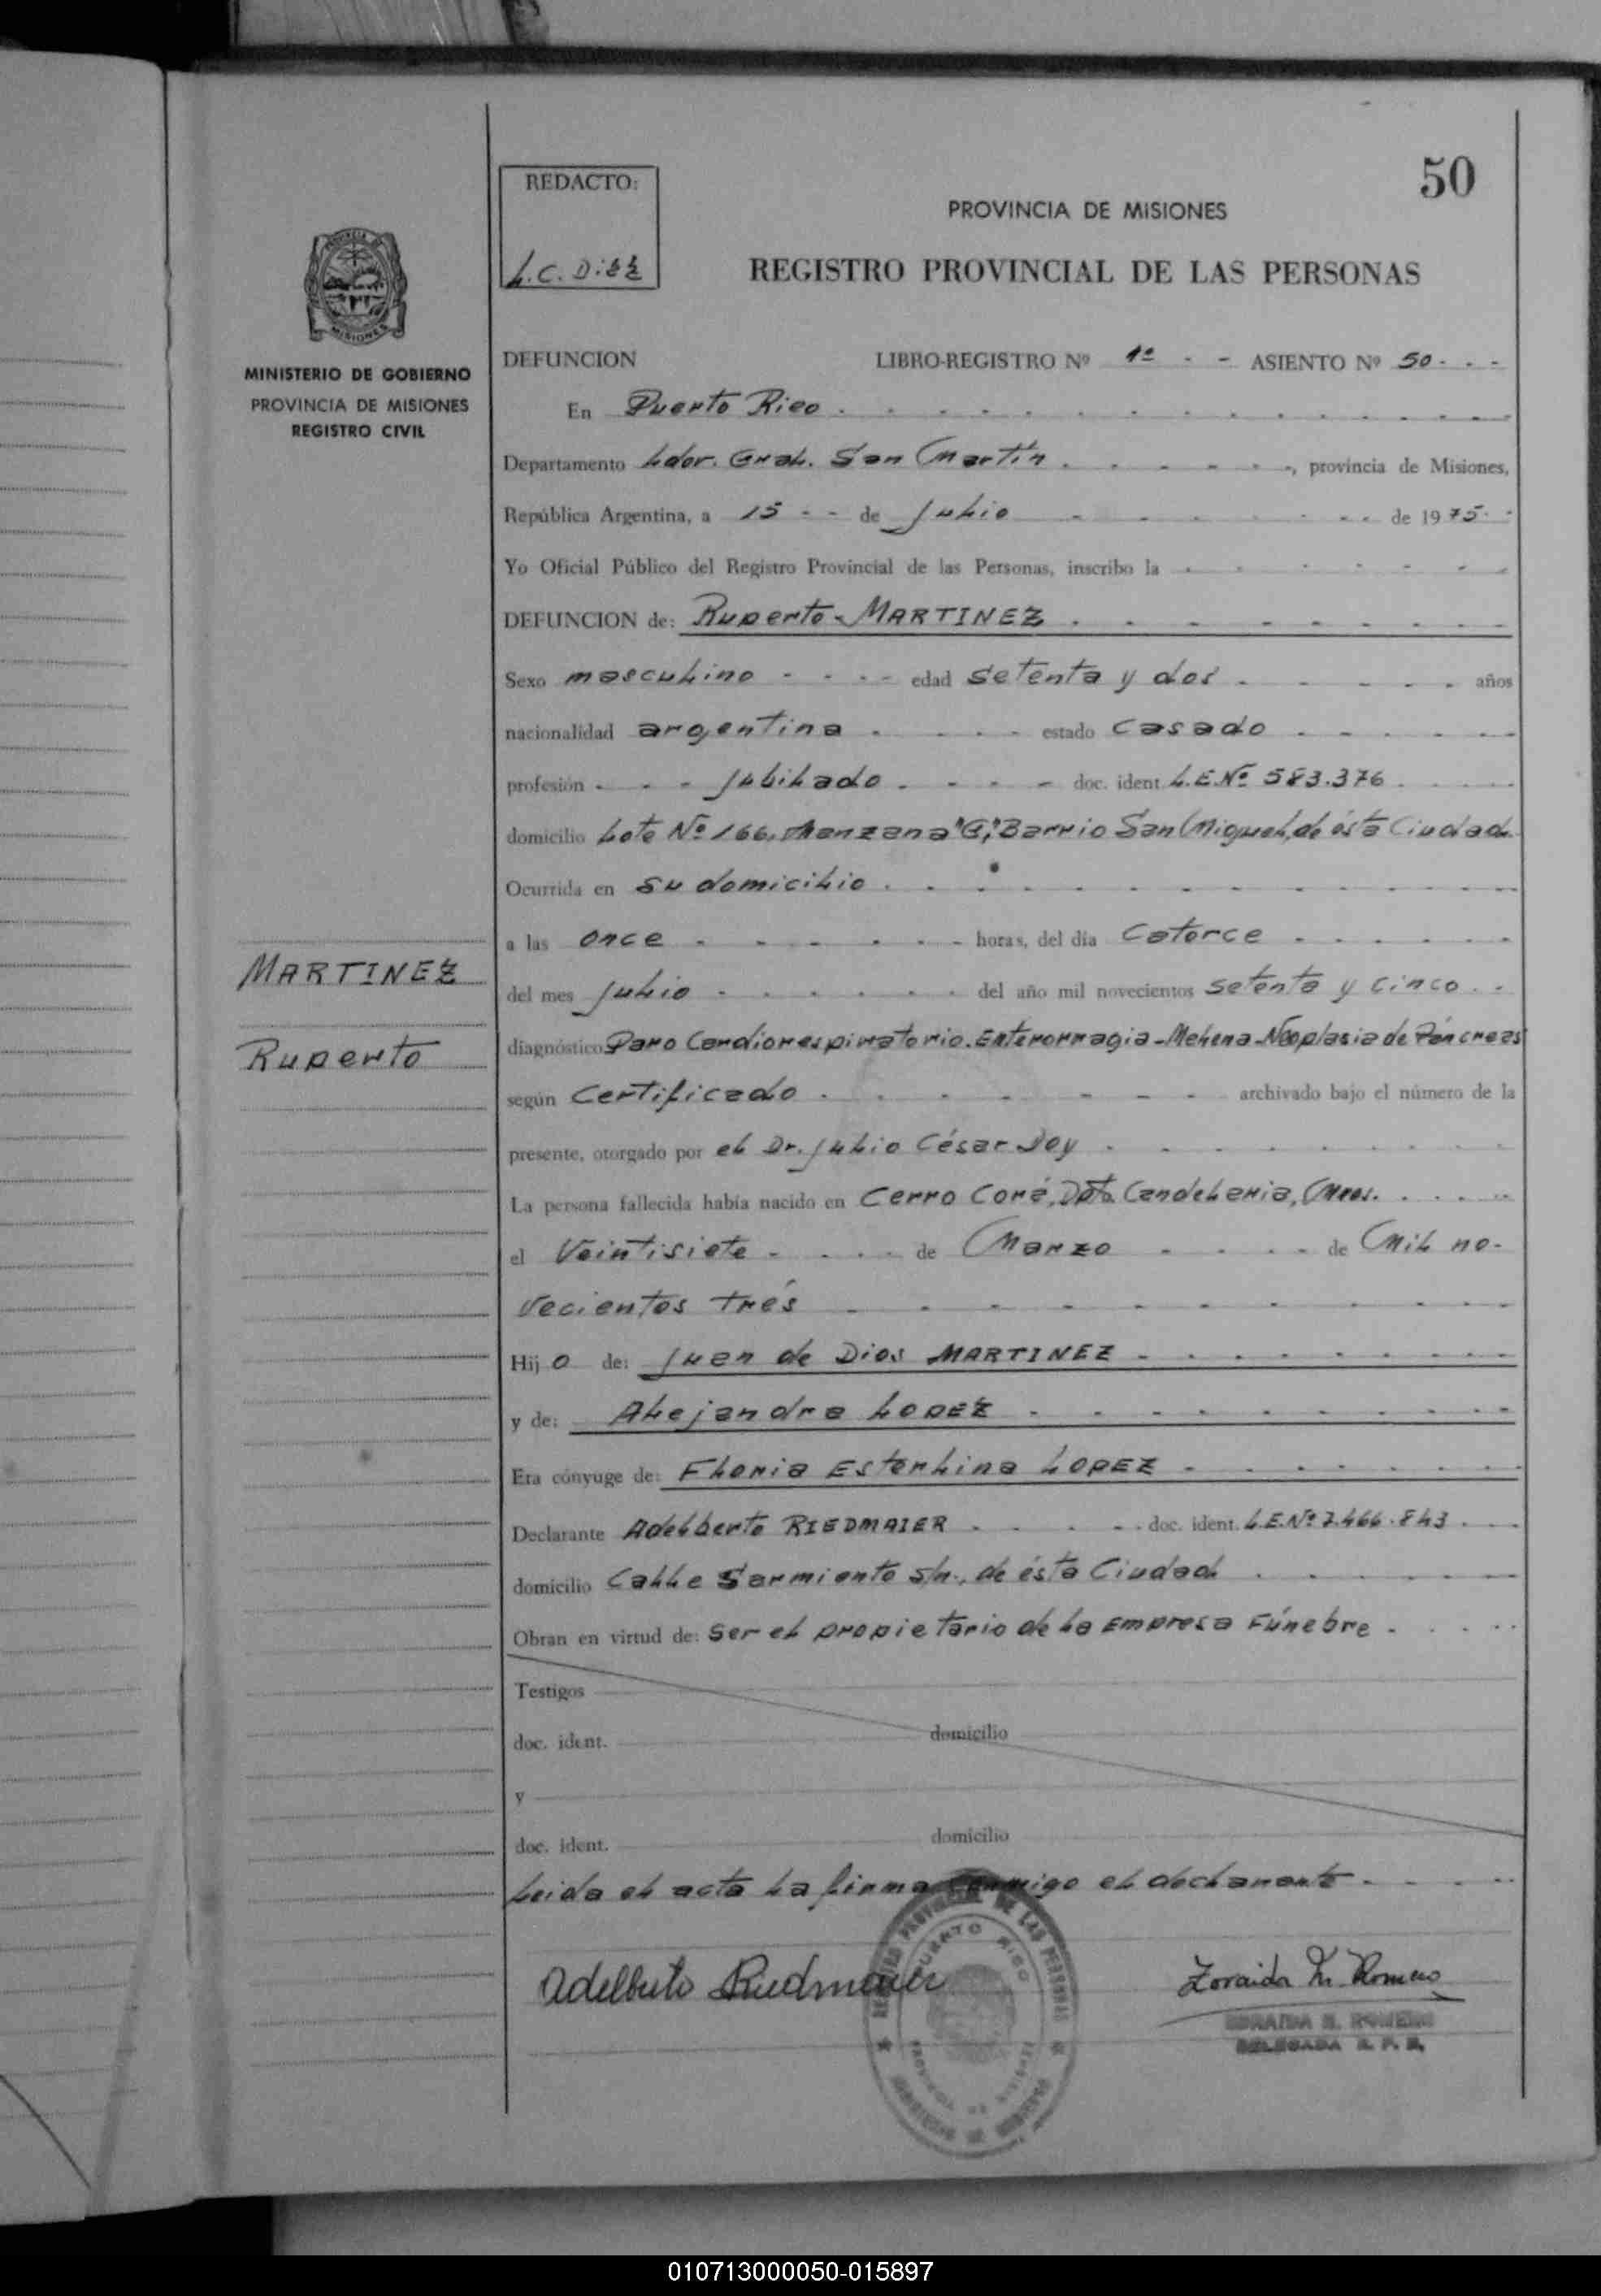 50
REDACTO:
L.C. Diez
PROVINCIA DE MISIONES
REGISTRO PROVINCIAL DE LAS PERSONAS
MINISTERIO DE GOBIERNO
PROVINCIA DE MISIONES
REGISTRO CIVIL
DEFUNCION LIBRO-REGISTRO Nº 1º - - ASIENTO Nº 50 - - -
En Puerto Rico
Departamento Ldor. Gral. San Martín, provincia de Misiones,
República Argentina, a 15 - - de Julio de 1975
Yo Oficial Público del Registro Provincial de las Personas, inscribo la
DEFUNCION de: Ruperto - MARTINEZ
Sexo masculino - - - - edad setenta y dos años
nacionalidad argentina estado casado
profesión - - - Jubilado - doc. ident. L.E.Nº 583.376
domicilio Lote Nº 166, Manzana "G", Barrio San Miguel, de ésta Ciudad
Ocurrida en su domicilio
a las once horas, del día catorce
MARTINEZ
del mes Julio del año mil novecientos setenta y cinco
Ruperto
diagnóstico Paro Cardiorespiratorio. Enterorragia - Melena - Neoplasia de Páncreas
según certificado archivado bajo el número de la
presente, otorgado por el Dr. Julio César Doy
La persona fallecida había nacido en Cerro Corá, Dpto. Candelaria, Mnes.
el Veintisiete de Marzo de Mil no-
vecientos trés
Hijo de: Juan de Dios MARTINEZ
y de: Alejandra LOPEZ
Era cónyuge de: Floria Esterlina LOPEZ
Declarante Adelberto RIEDMAIER doc. ident. L.E.Nº 7.466.843
domicilio Calle Sarmiento s/n., de ésta Ciudad
Obran en virtud de: ser el propietario de la Empresa Fúnebre
Testigos
doc. ident. domicilio
y
doc. ident. domicilio
Leida el acta la firma conmigo el declarante
Adelberto Riedmaier
Zoraida N. Romero
ZORAIDA N. ROMERO
DELEGADA R. P. P.
REGISTRO PROVINCIAL DE LAS PERSONAS
PUERTO RICO
PROVINCIA DE MISIONES
010713000050-015897